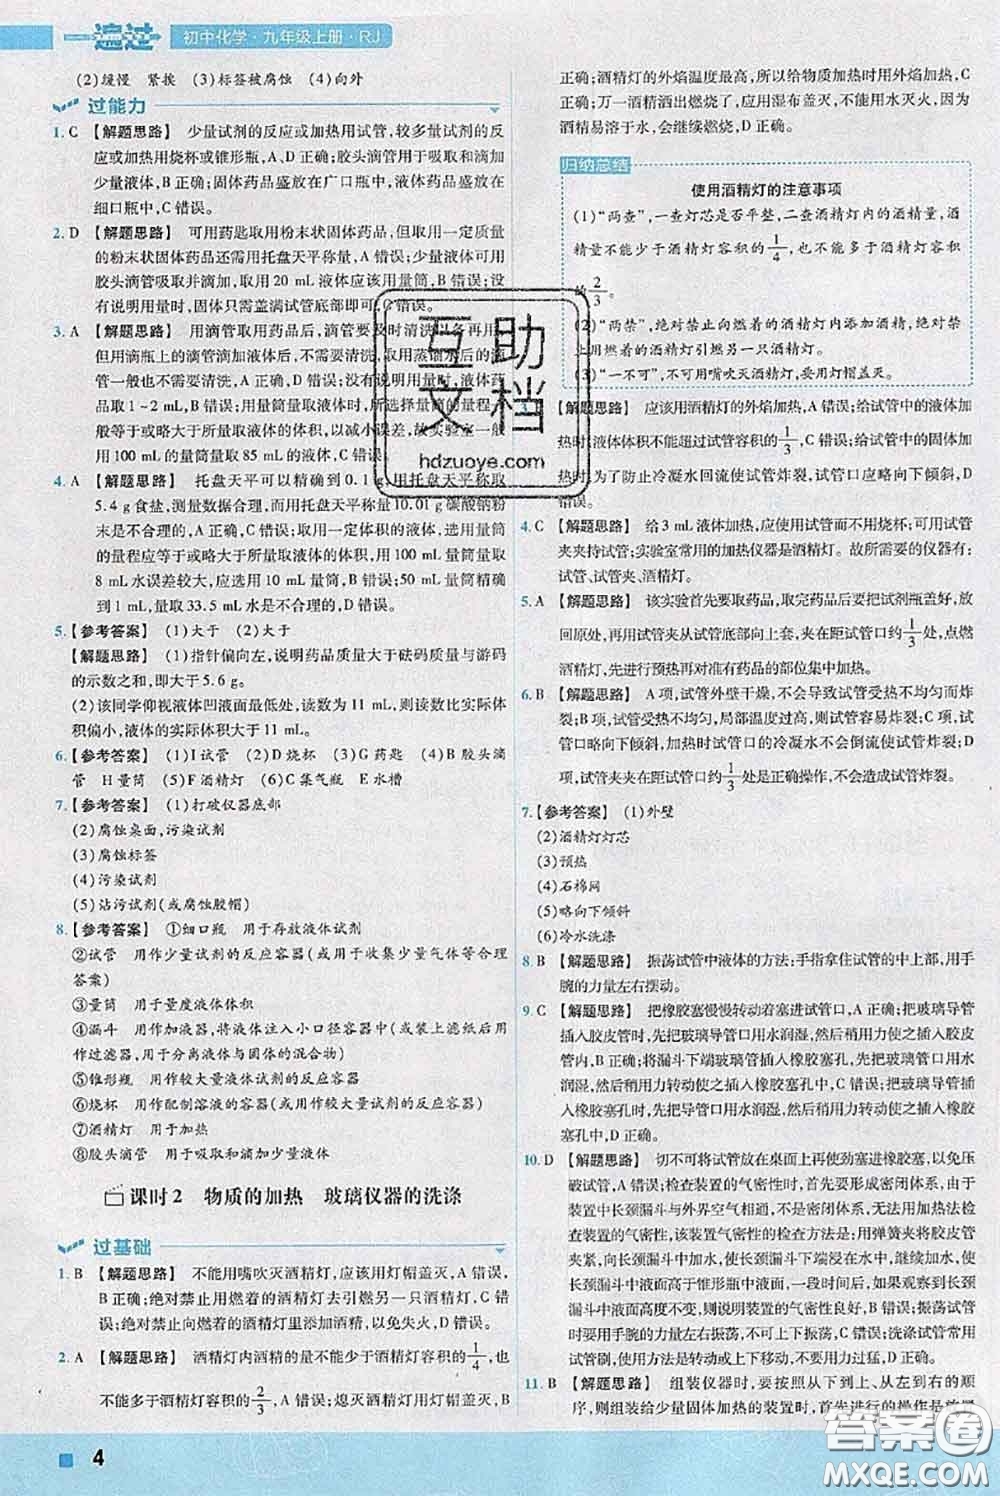 一遍过 初中化学·九年级上册·RJ
(2)缓慢 紧挨 (3)标签被腐蚀 (4)向外
过能力
1. C 【解题思路】 少量试剂的反应或加热用试管,较多量试剂的反
应或加热用烧杯或锥形瓶,A、D 正确;胶头滴管用于吸取和滴加
少量液体,B 正确;固体药品盛放在广口瓶中,液体药品盛放在
细口瓶中,C 错误。
2. D 【解题思路】 可用药匙取用粉末状固体药品,但取用一定质量
的粉末状固体药品还需用托盘天平称量,A 错误;少量液体可用
胶头滴管吸取并滴加,取用 20 mL 液体应该用量筒,B 错误;没
有说明用量时,固体只需盖满试管底部即可,C 错误。
3. A 【解题思路】 用滴管取用药品后,滴管要及时清洗以备再用,
但用滴瓶上的滴管滴加液体后,则不需要清洗,取用蒸馏水后的滴
管一般也不需要清洗,A 正确;没有说明用量时,液体药
品取 1~2 mL,B 错误;用量筒量取液体时,所选择量筒的量程
般等于或略大于所量取液体的体积,以减小误差,故实验室一般
用 100 mL 的量筒量取 85 mL 的液体,C 错误。
4. A 【解题思路】 托盘天平可以精确到 0.1 g,用托盘天平称取
5.4 g 食盐,测量数据合理,而用托盘天平称量 10.01 g 碳酸钠粉
末是不合理的,A 正确,C 错误;取用一定体积的液体,使用量筒
的量程应等于或略大于所量取液体的体积,用 100 mL 量筒量取
8 mL 水误差较大,应选用 10 mL 量筒,B 错误;50 mL 量筒精确
到 1 mL,量取 33.5 mL 水是不合理的,D 错误。
5. 【参考答案】 (1)大于 (2)大于
【解题思路】 (1)指针偏向左,说明药品质量大于砝码质量与游码
的示数之和,即大于 5.6 g。
(2)该同学仰视液体凹液面最低处,读数为 11 mL,则读数比实际体
积偏小,液体的实际体积大于 11 mL。
6. 【参考答案】 (1)I 试管 (2)D 烧杯 (3)G 药匙 (4)B 胶头滴
管 H 量筒 (5)F 酒精灯 (6)C 集气瓶 E 水槽
7. 【参考答案】 (1)打破仪器底部
(2)腐蚀桌面,污染试剂
(3)腐蚀标签
(4)污染试剂
(5)沾污试剂(或腐蚀胶帽)
8. 【参考答案】 ①细口瓶 用于存放液体试剂
②试管 用作少量试剂的反应容器(或用作收集少量气体等合理
答案)
③量筒 用于量度液体体积
④漏斗 用作加液器,将液体注入小口径容器中(或装上滤纸后用
作过滤器,用于分离液体与固体的混合物)
⑤锥形瓶 用作较大量液体试剂的反应容器
⑥烧杯 用作配制溶液的容器(或用作较大量试剂的反应容器)
⑦酒精灯 用于加热
⑧胶头滴管 用于吸取和滴加少量液体
课时 2 物质的加热 玻璃仪器的洗涤
过基础
1. B 【解题思路】 不能用嘴吹灭酒精灯,应该用灯帽盖灭,A 错误,B
正确;绝对禁止用燃着的酒精灯去引燃另一只酒精灯,C 错误;
绝对禁止向燃着的酒精灯里添加酒精,以免失火,D 错误。
2. A 【解题思路】 酒精灯内酒精的量不能少于酒精灯容积的 1/4,也
不能多于酒精灯容积的 2/3,A 错误;熄灭酒精灯用灯帽盖灭,B
正确;酒精灯的外焰温度最高,所以给物质加热时用外焰加热,C
正确;万一酒精洒出燃烧了,应用湿布盖灭,不能用水灭火,因为
酒精易溶于水,会继续燃烧,D 正确。
归纳总结
使用酒精灯的注意事项
(1)“两查”,一查灯芯是否平整,二查酒精灯内的酒精量,酒
精量不能少于酒精灯容积的 1/4,也不能多于酒精灯容积
的 2/3。
(2)“两禁”,绝对禁止向燃着的酒精灯内添加酒精,绝对禁
止用燃着的酒精灯引燃另一只酒精灯。
(3)“一不可”,不可用嘴吹灭酒精灯,要用灯帽盖灭。
3. 【解题思路】 应该用酒精灯的外焰加热,A 错误;给试管中的液体加
热时,液体体积不能超过试管容积的 1/3,C 错误;给试管中的固体加
热时,为了防止冷凝水回流使试管炸裂,试管口应略向下倾斜,D
错误。
4. C 【解题思路】 给 3 mL 液体加热,应使用试管而不用烧杯;可用试管
夹夹持试管;实验室常用的加热仪器是酒精灯。故所需要的仪器有:
试管、试管夹、酒精灯。
5. A 【解题思路】 该实验首先要取药品,取完药品后要把试剂瓶盖好,放
回原处,再用试管夹从试管底部向上套,夹在距试管口约 1/3 处,点燃
酒精灯,先进行预热再对准有药品的部位集中加热。
6. B 【解题思路】 A 项,试管外壁干燥,不会导致试管受热不均匀而炸
裂;B 项,试管受热不均匀,局部温度过高,则试管容易炸裂;C 项,试
管口略向下倾斜,加热时试管口的冷凝水不会倒流使试管炸裂;D
项,试管夹夹在距试管口 1/3 处是正确操作,不会使试管炸裂。
7. 【参考答案】 (1)外壁
(2)酒精灯灯芯
(3)预热
(4)石棉网
(5)略向下倾斜
(6)冷水洗涤
8. B 【解题思路】 振荡试管中液体的方法:手指拿住试管的中上部,用手
腕的力量左右摆动。
9. C 【解题思路】 把橡胶塞慢慢转动着塞进试管口,A 正确;把玻璃导管
插入胶皮管时,先把玻璃导管口用水润湿,然后稍用力使之插入胶皮
管内,B 正确;将漏斗下端玻璃管插入橡胶塞孔,先把玻璃导管口用水
润湿,然后稍用力转动使之插入橡胶塞孔中,C 错误;把玻璃导管插入
橡胶塞孔时,先把玻璃导管口用水润湿,然后稍用力转动使之插入橡胶
塞孔中,D 正确。
10. D 【解题思路】 切不可将试管放在桌面上再使劲塞进橡胶塞,以免压
破试管,A 错误;检查装置的气密性时,首先要形成密闭体系,该
装置中长颈漏斗与外界空气相通,不是密闭体系,无法用加热法检
查装置的气密性,该装置气密性的检查方法是:用弹簧夹将胶皮管
夹紧,向长颈漏斗中加水,使长颈漏斗下端浸在水中,继续加水,使
长颈漏斗中液面高于锥形瓶中液面,一段时间后,观察到长颈漏斗中
液面高度不变,则说明装置的气密性良好,B 错误;振荡试管时,应
要用手腕的力量左右振荡,不可上下振荡,C 错误;洗涤试管时用
试管刷,使之转动或上下移动,不要用力过猛,D 正确。
11. B 【解题思路】 组装仪器时,要按照从下到上、从左到右的顺
序,则组装给少量固体加热的装置时,首先进行的操作是放置
4
互助
文档
hdzuoye.com
答案圈
MXQE.COM